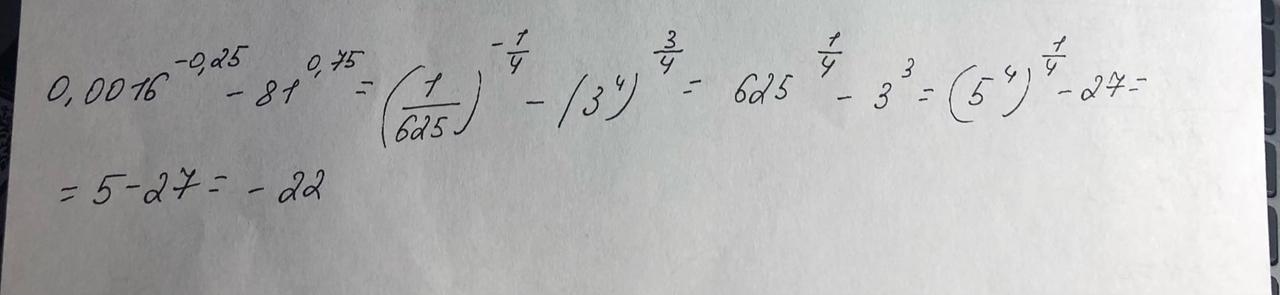 0,0016^{-0,25} - 81^{0,75} = (1/625)^{-1/4} - (3^4)^{3/4} = 625^{1/4} - 3^3 = (5^4)^{1/4} - 27 =
= 5 - 27 = - 22